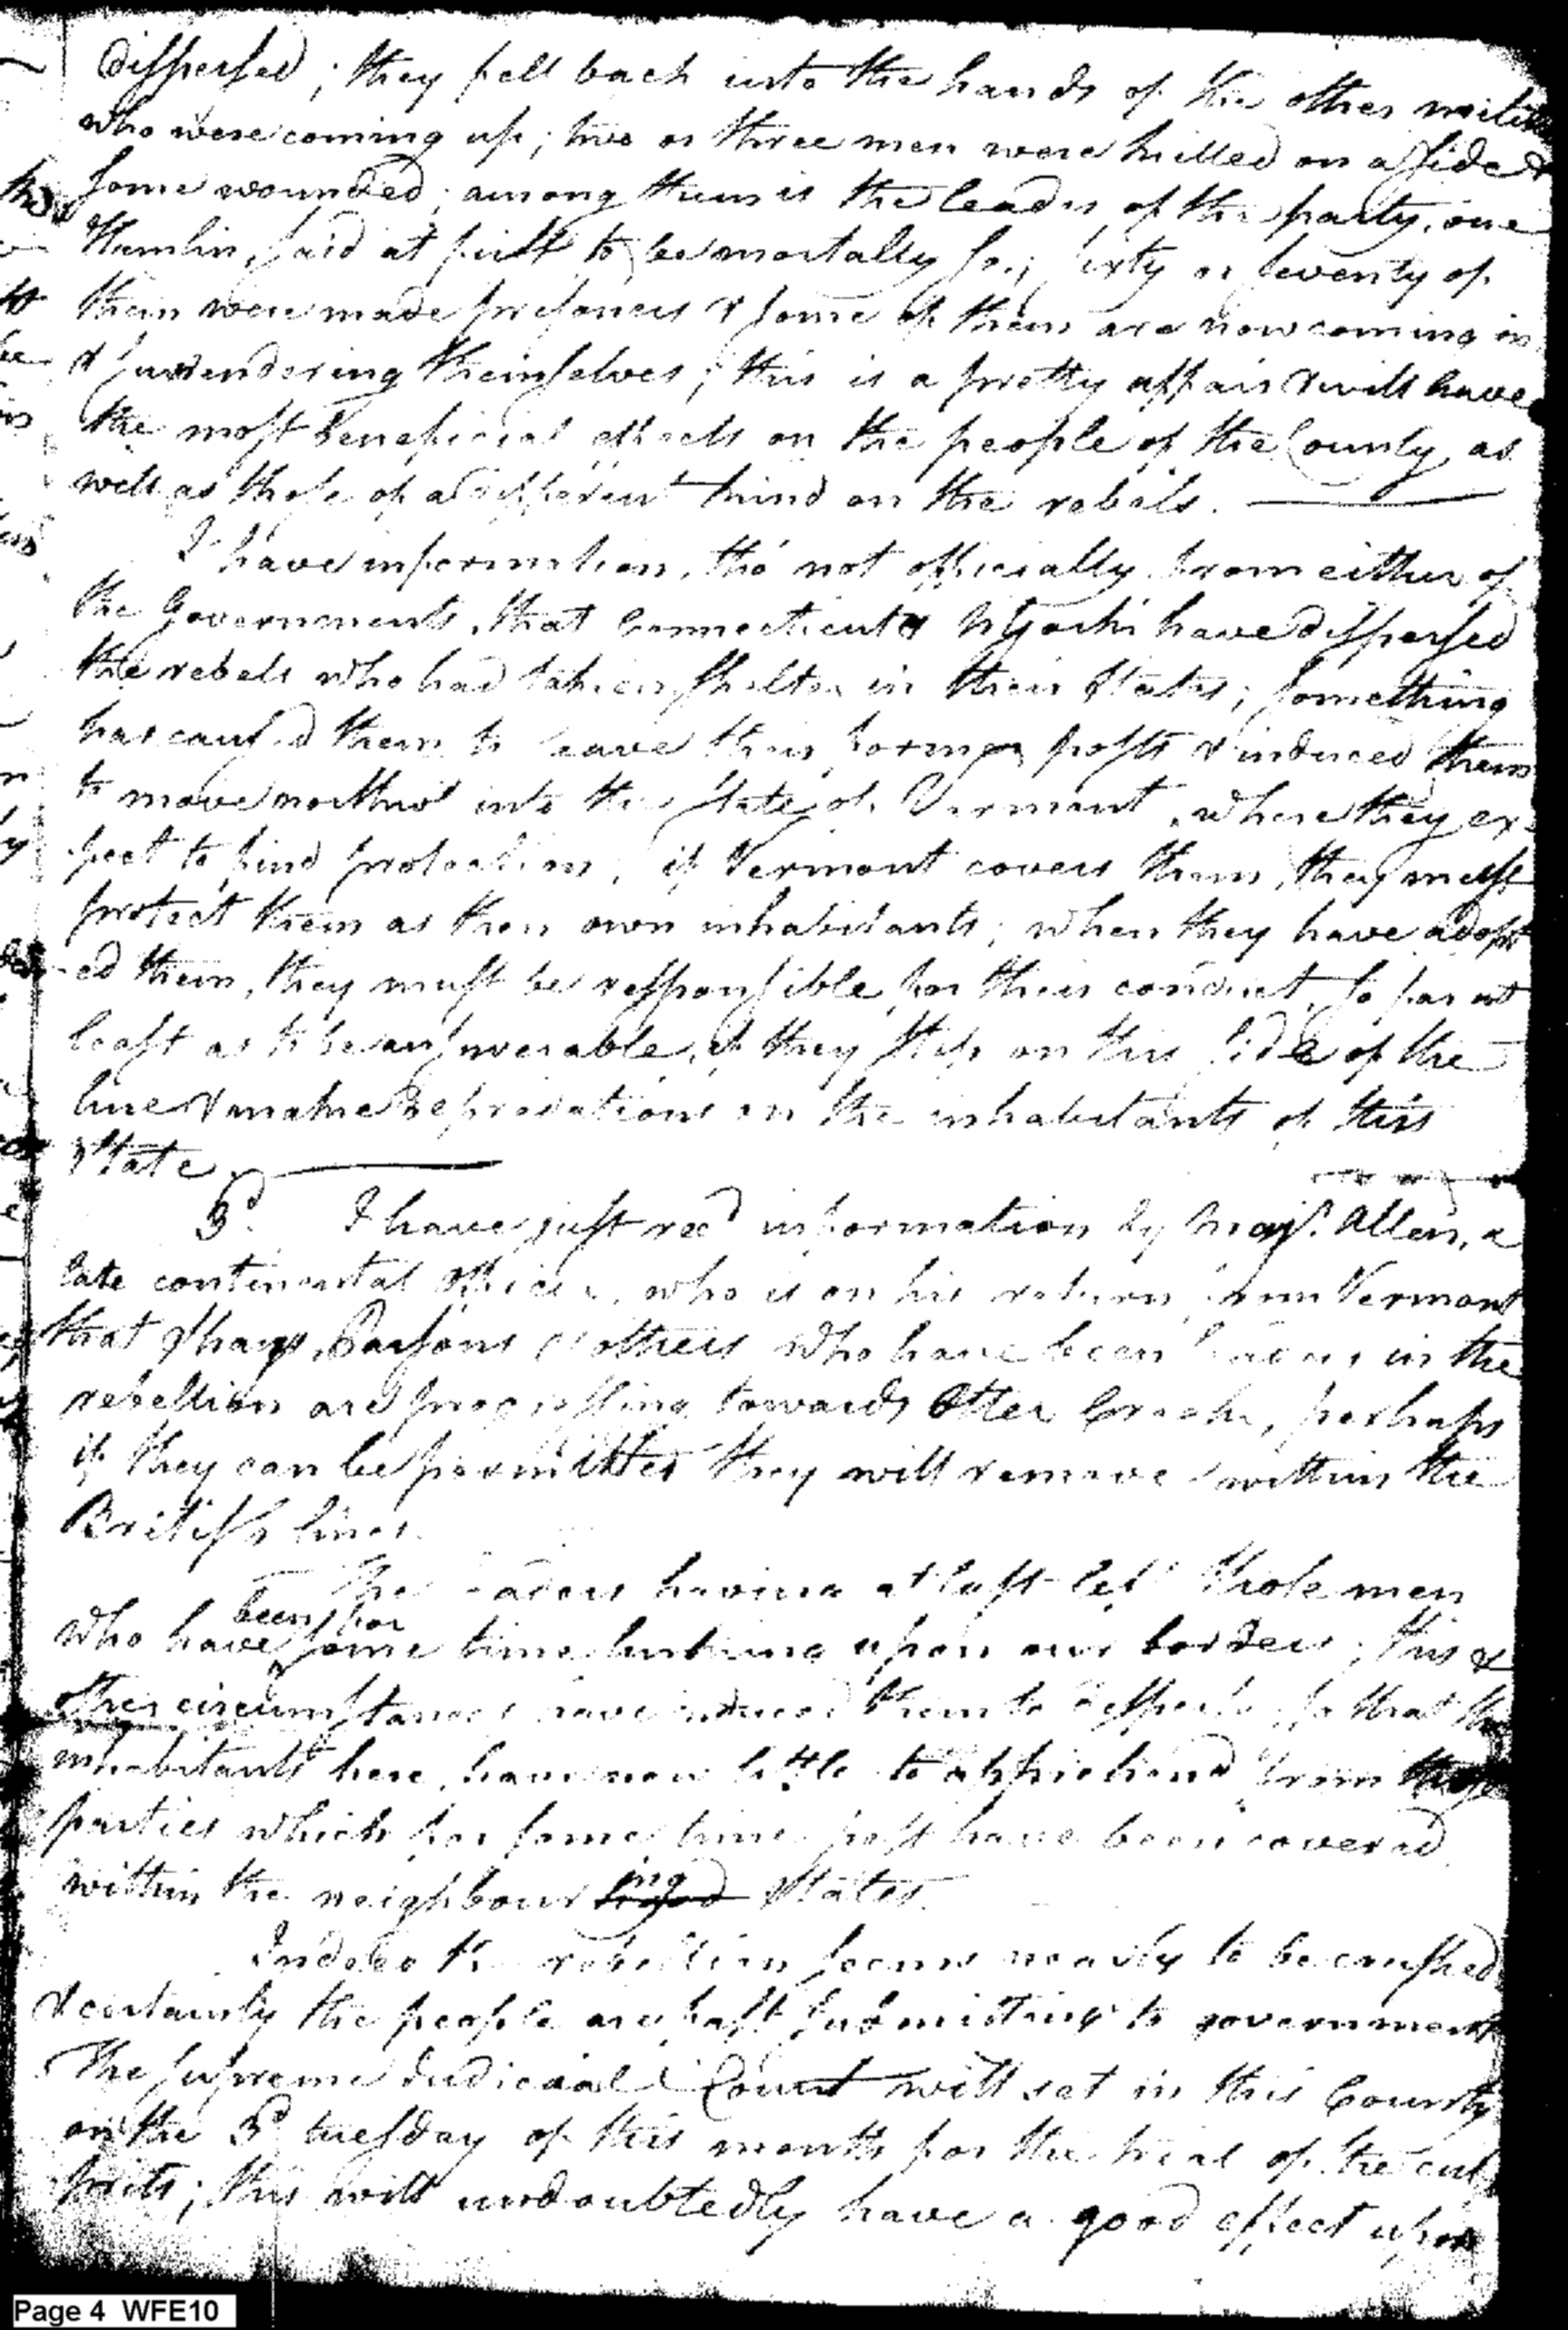 dispersed; they fell back into the hands of the other militia
who were coming up; two or three men were killed on a side &
some wounded; among them is the leader of the party, one
Hamlin, said at first to be mortally so; sixty or seventy of
them were made prisoners & some of them are now coming in
& surrendering themselves; this is a pretty affair & will have
the most beneficial effects on the people of the County, as
well as those of a different kind on the rebels.
I have information, tho' not officially from either of
the Governments, that Connecticut & NYork have dispersed
the rebels who had taken shelter in their States; something
has caused them to leave their former posts & induced them
to move northw'd into the State of Vermont, where they ex-
pect to find protection, if Vermont covers them, they must
protect them as their own inhabitants; when they have adopt
-ed them, they must be responsible for their conduct, so far at
least as to be answerable, if they step on this side of the
line & make depredations on the inhabitants of this
State.
3d. I have just rec'd information by Majr. Allen, a
late continental officer, who is on his return from Vermont
that Shays, Parsons & others who have been leaders in the
rebellion are progressing towards Otter Creek, perhaps
if they can be permitted they will remove within the
British lines.
The leaders having at last left those men
who have been for some time lurking upon our borders; this &
other circumstances have induced them to disperse so that the
inhabitants here, have now little to apprehend from those
parties which for some time past have been covered
within the neighbouring States.
Indeed the rebellion seems nearly to be crushed
& certainly the people are fast submitting to government
The Supreme Judicial Court will set in this County
on the 3d tuesday of this month for the trial of the cul
prits; this will undoubtedly have a good effect upon
Page 4 WFE10